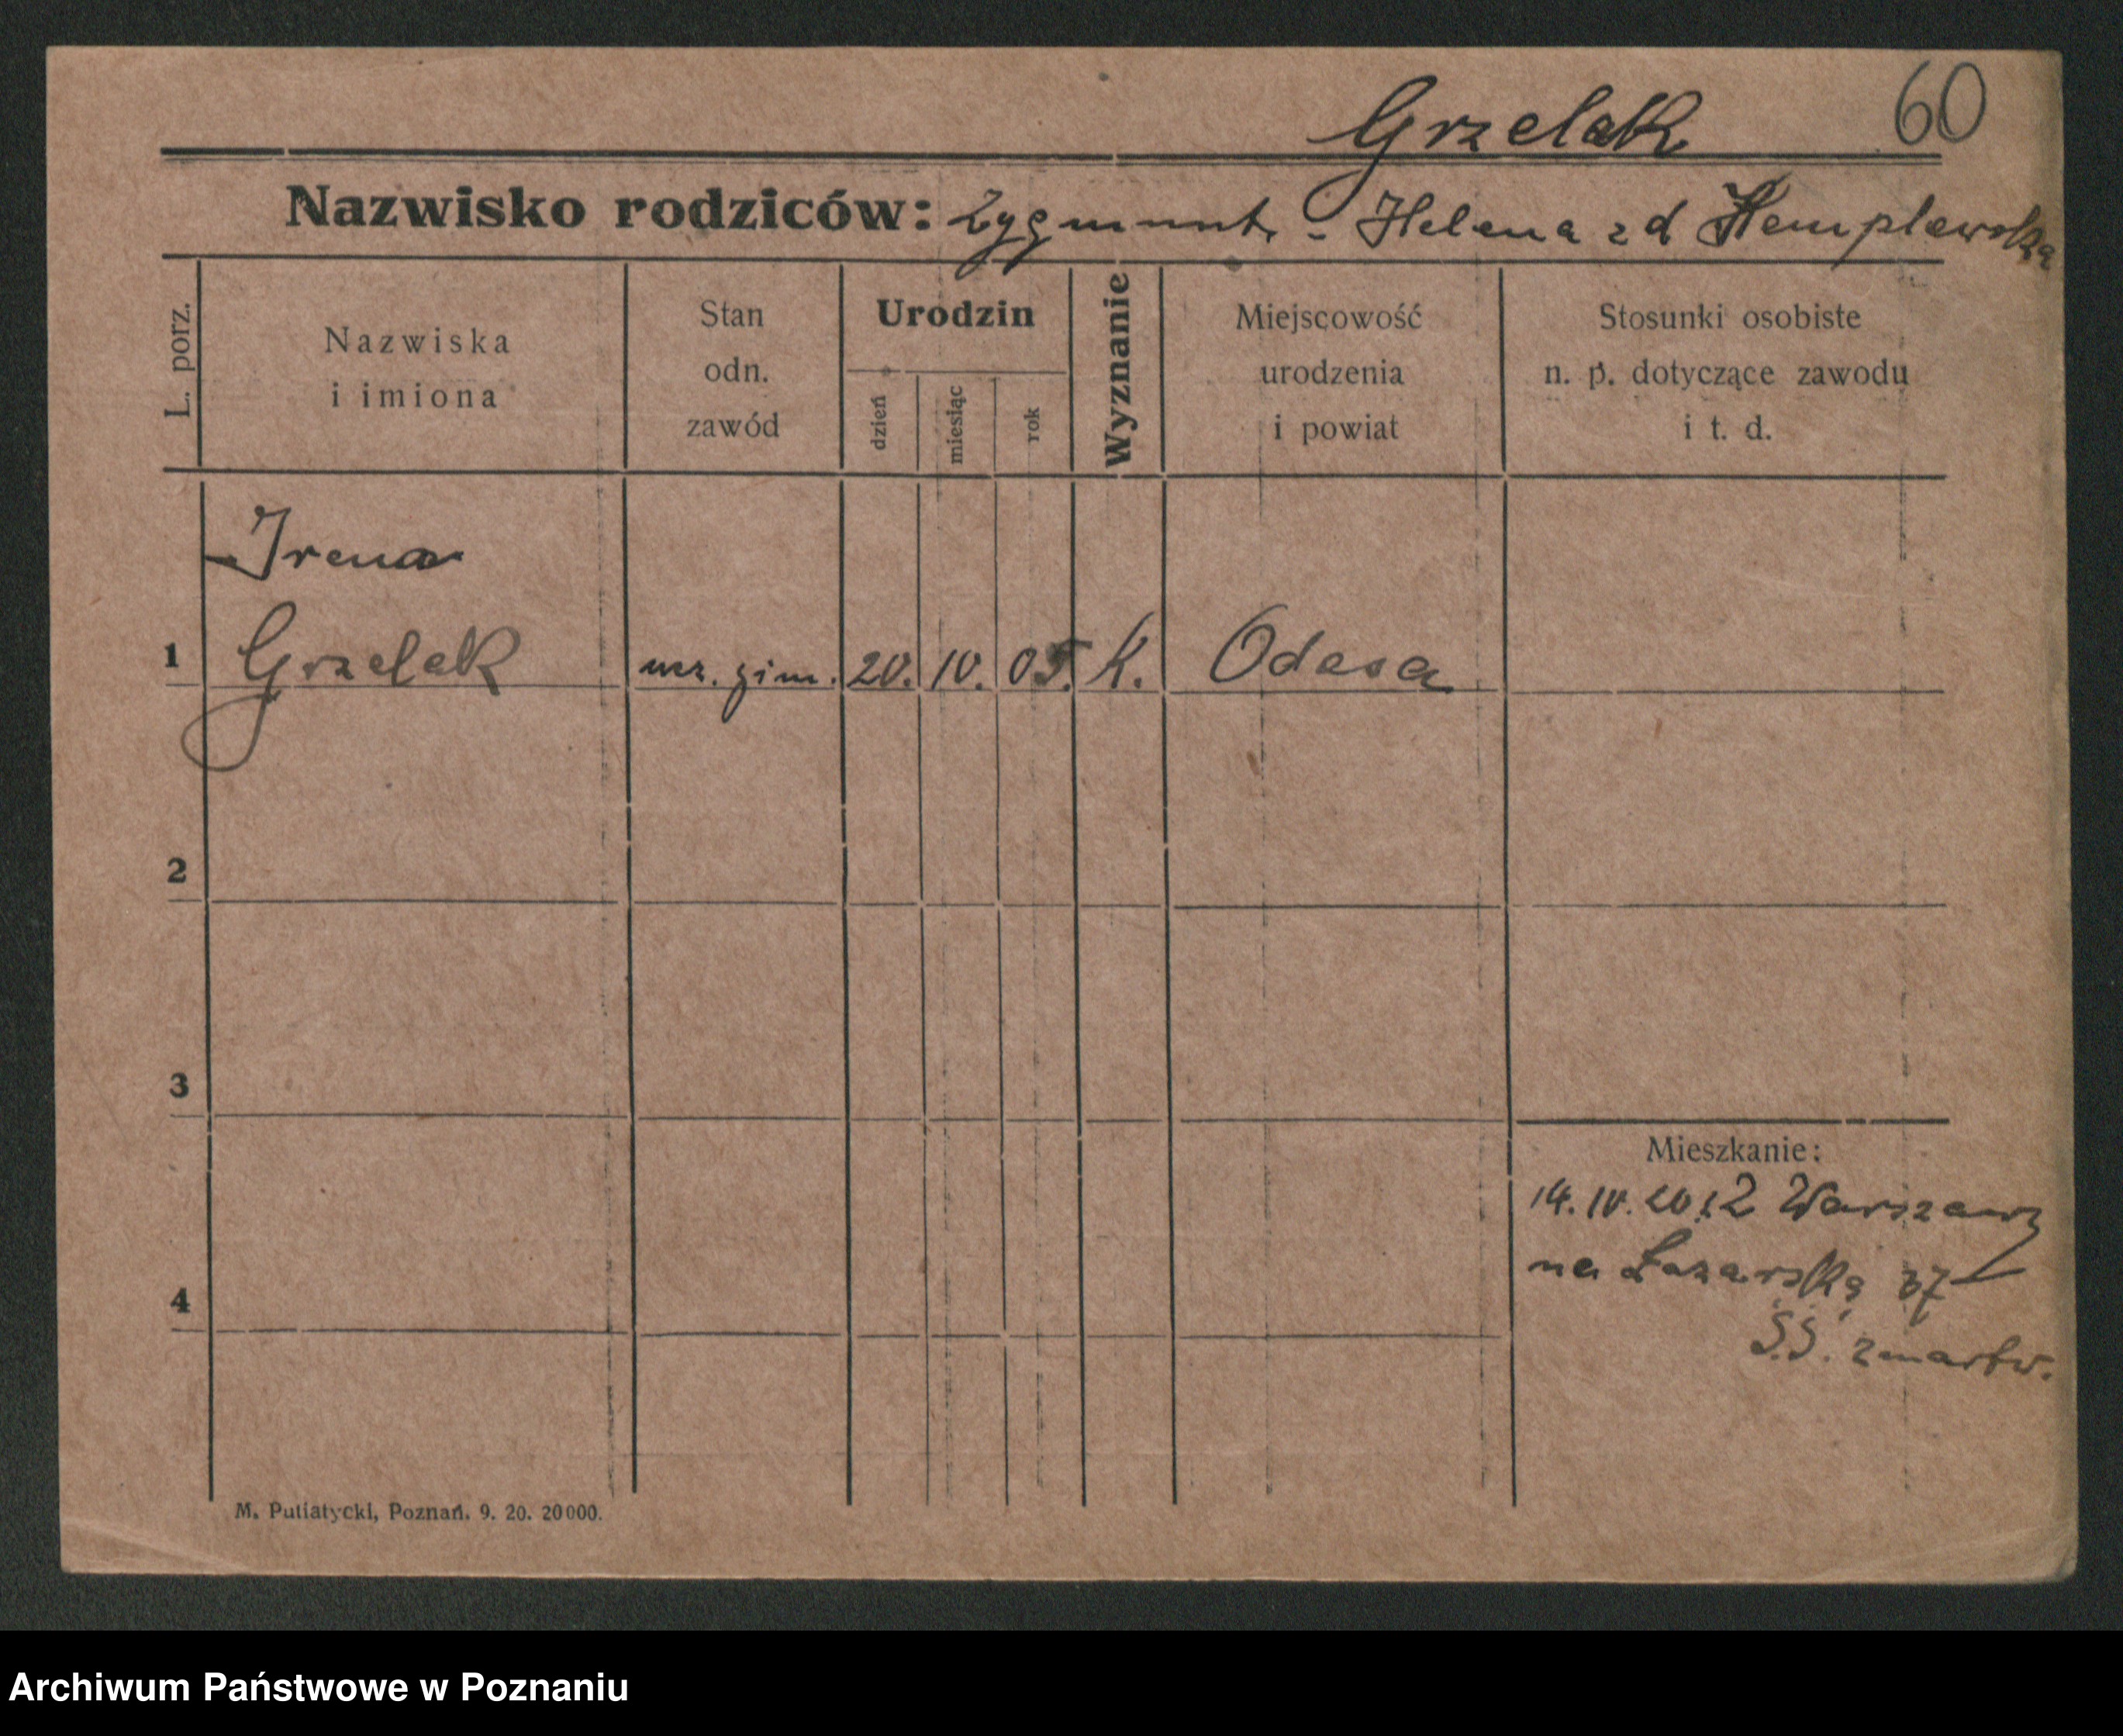 Grzelak 60
Nazwisko rodziców: Zygmunt - Helena z d Hemplewska
L. porz.
Nazwiska
i imiona
Stan
odn.
zawód
Urodzin
dzień
miesiąc
rok
Wyznanie
Miejscowość
urodzenia
i powiat
Stosunki osobiste
n. p. dotyczące zawodu
i t. d.
Irena
1 Grzelak ucz. gim. 20. 10. 05. K. Odesa
2
3
4
Mieszkanie:
14. 10. 20 z Warszawy
na Łazarską 37
S.S. zmartw.
M. Putiatycki, Poznań. 9. 20. 20000.
Archiwum Państwowe w Poznaniu